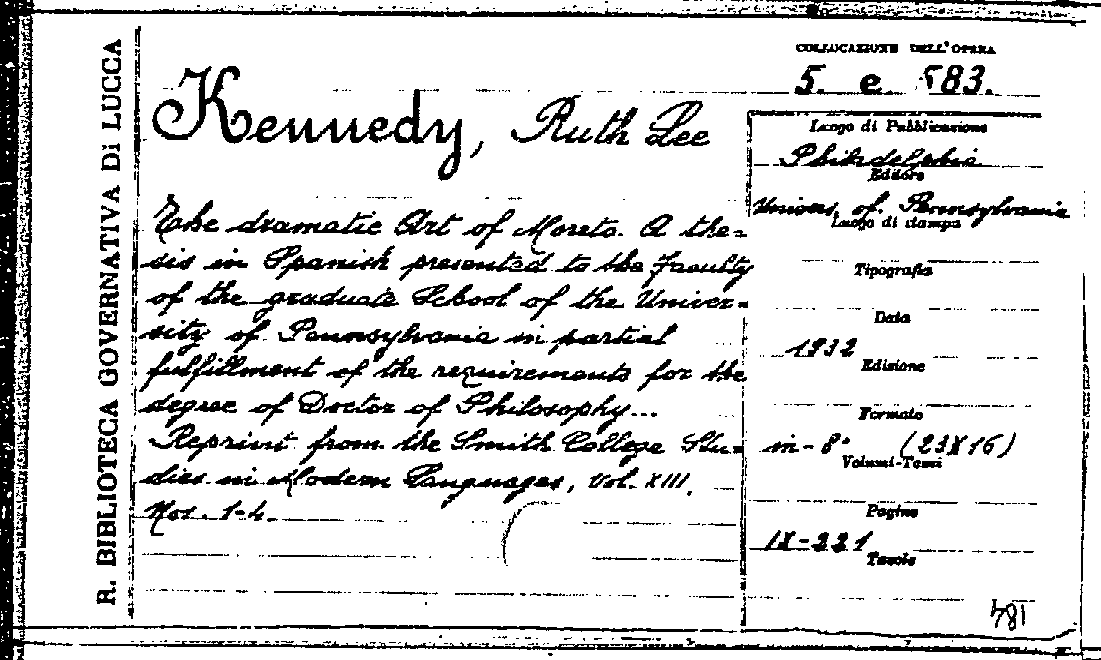 R. BIBLIOTECA GOVERNATIVA DI LUCCA
COLLOCAZIONE DELL'OPERA
5. e 583.
Kennedy, Ruth Lee
The dramatic Art of Moreto. A the=
sis in Spanish presented to the Faculty
of the graduate School of the Univer=
sity of Pennsylvania in partial
fulfillment of the requirements for the
degree of Doctor of Philosophy...
Reprint from the Smith College Stu=
dies in Modern Languages, Vol. XIII,
Nos. 1-4.
Luogo di Pubblicazione
Philadelphia
Editore
Univers. of. Pennsylvania
Luogo di stampa
Tipografia
Data
1932
Edizione
Formato
in-8° (23X16)
Volumi-Tomi
Pagine
IX-221
Tavole